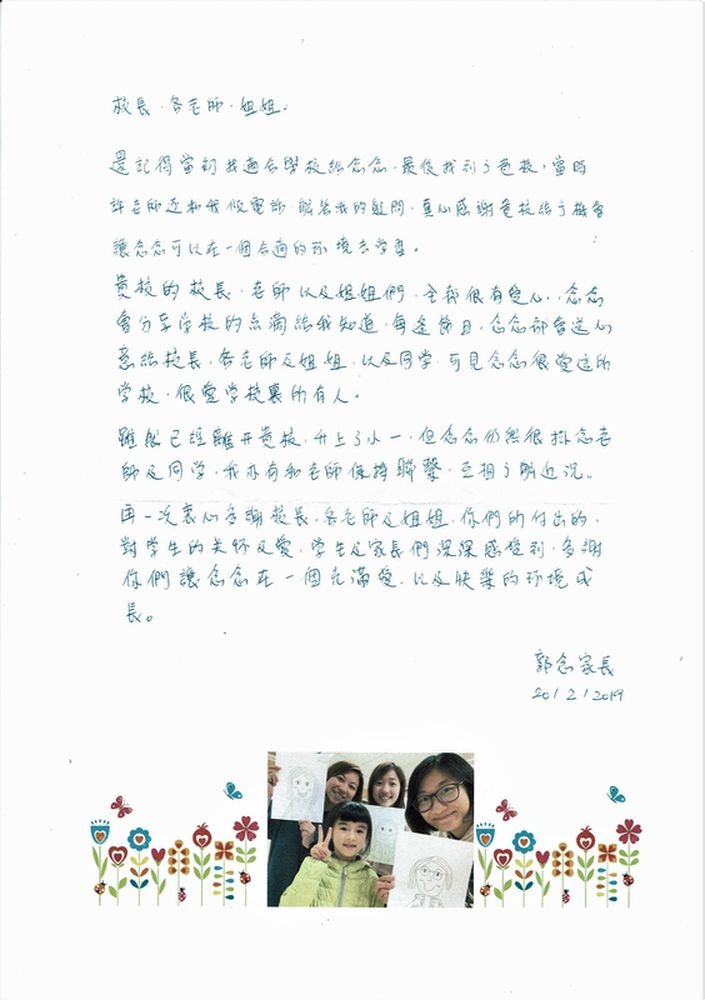 校長、各老師、姐姐:
還記得當初找適合學校給念念,最後找到了貴校,當時
許老師还和我傾電話,解答我的疑問,真心感謝貴校給了機會
讓念念可以在一個合適的环境去学習。
貴校的校長、老師以及姐姐們,全部很有愛心,念念
會分享学校的点滴給我知道,每逢節日,念念都會送心
意給校長、各老師及姐姐,以及同学,可見念念很愛這所
学校,很愛学校裏的有人。
雖然已經離开貴校,升上了小一,但念念仍然很掛念老
師及同学,我亦有和老師保持聯繫,互相了解近況。
再一次衷心多謝校長、各老師及姐姐,你們的付出的,
對学生的关怀及愛,学生及家長們深深感受到,多謝
你們讓念念在一個充滿愛,以及快樂的环境成
長。
郭念家長
20/2/2019